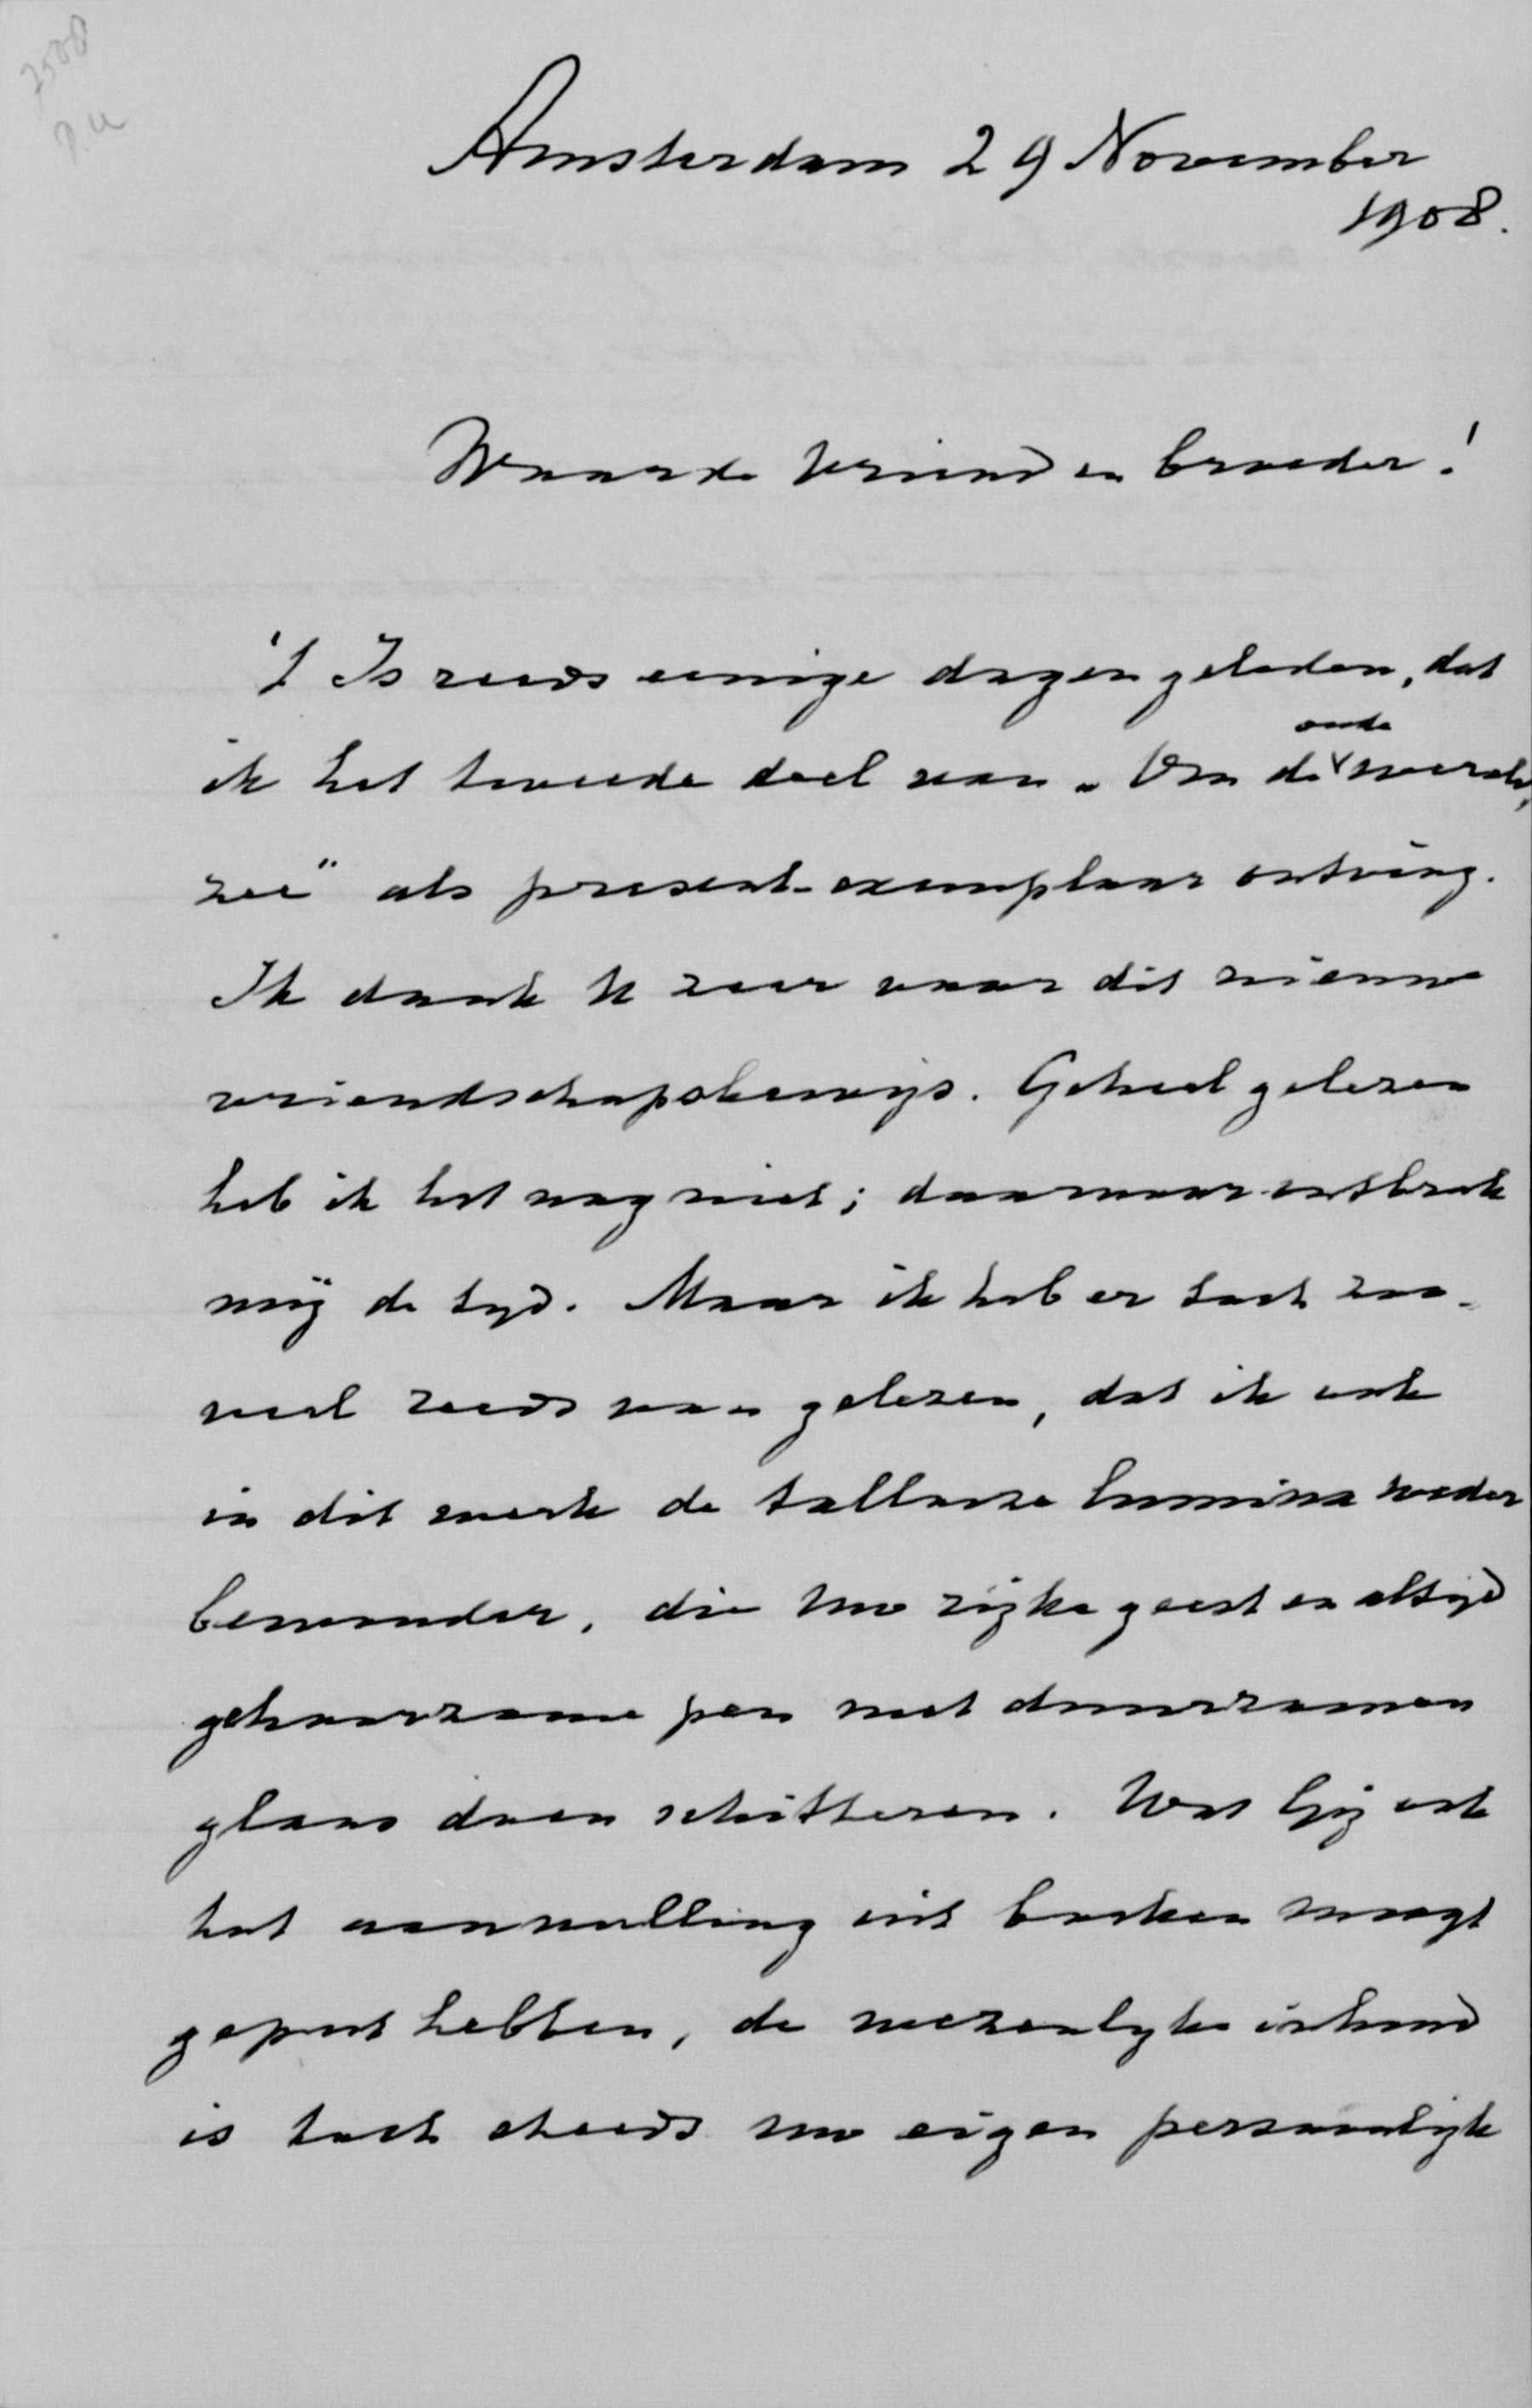 7508
Amsterdam 29 November
1908.
Waarde Vriend en broeder!
't Is reeds eenige dagen geleden, dat
oude
ik het tweede deel van „Om de wereld,
zee" als present-exemplaar ontving.
Ik dank U zeer voor dit nieuwe
vriendschapsbewijs. Geheel gelezen
heb ik het nog niet; daarvoor ontbrak
mij de tijd. Maar ik heb er toch zoo-
veel reeds van gelezen, dat ik ook
in dit werk de tallooze lumina weder
bewonder, die Uw rijke geest en altijd
gehoorzame pen met duurzamen
glans doen schitteren. Wat Gij ook
tot aanvulling uit boeken moogt
geput hebben, de wezenlijke inhoud
is toch steeds Uw eigen persoonlijk